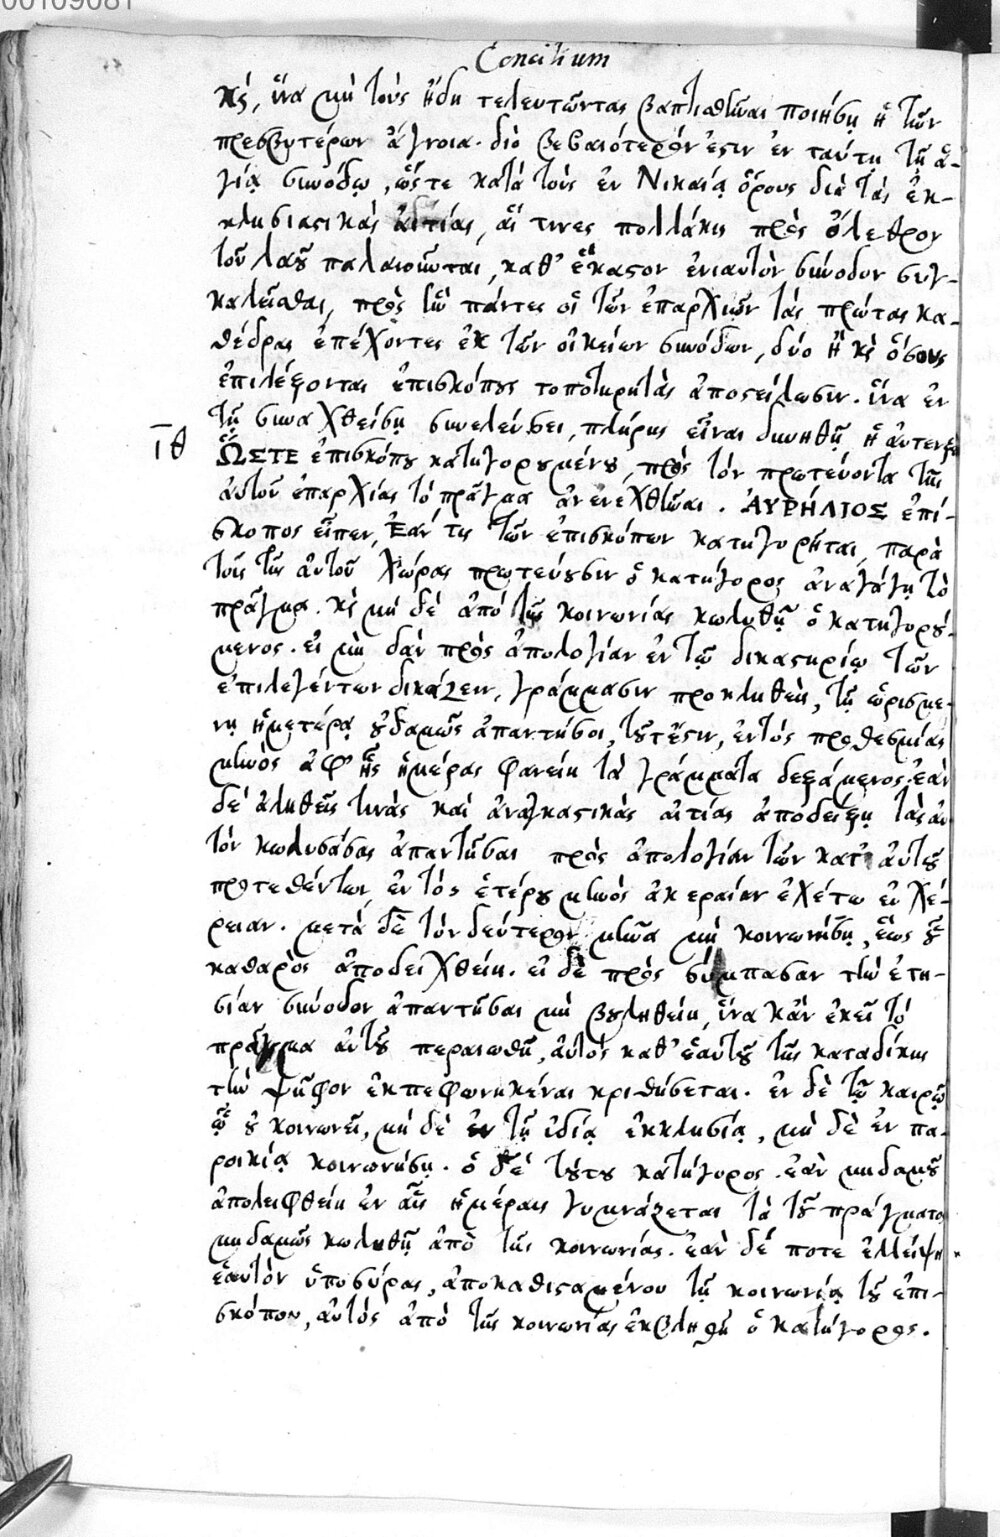 00109081
Concilium
κὶ, ἵνα μὴ τοὺς ἤδη τελευτῶντας βαπτισθῆναι ποιήσῃ ἡ τῶν
πρεσβυτέρων ἄγνοια. διὸ βεβαιότερόν ἐστιν ἐν ταύτῃ τῇ ἁ-
γίᾳ συνόδῳ, ὥστε κατὰ τοὺς ἐν Νικαίᾳ ὅρους διὰ τὰς ἐκ-
κλησιαστικὰς αἰτίας, αἵ τινες πολλάκις πρὸς ὄλεθρον
τοῦ λαοῦ παλαιοῦνται, καθ' ἕκαστον ἐνιαυτὸν σύνοδον συγ-
καλεῖσθαι, πρὸς ἣν πάντες οἱ τῶν ἐπαρχιῶν τὰς πρώτας κα-
θέδρας ἐπέχοντες ἐκ τῶν οἰκείων συνόδων, δύο ἢ κὶ ὅσους
ἐπιλέξονται ἐπισκόπους τοποτηρητὰς ἀποστείλωσιν. ἵνα ἐν
τῇ συναχθείσῃ συνελεύσει, πλήρης εἶναι δυνηθῇ ἡ αὐτεντία
ιθ ὭΣΤΕ ἐπισκόπου κατηγορουμένου, πρὸς τὸν πρωτεύοντα τῆς
αὐτοῦ ἐπαρχίας τὸ πρᾶγμα ἀνενεχθῆναι. ἈΥΡΉΛΙΟΣ ἐπί-
σκοπος εἶπεν, Ἐάν τις τῶν ἐπισκόπων κατηγορῆται, παρὰ
τοῖς τῆς αὐτοῦ χώρας πρωτεύουσιν ὁ κατήγορος ἀναγάγῃ τὸ
πρᾶγμα. κὶ μὴ δὲ ἀπὸ τῆς κοινωνίας κωλυθῇ ὁ κατηγορού-
μενος. εἰ μὴ δὰν πρὸς ἀπολογίαν ἐν τῷ δικαστηρίῳ τῶν
ἐπιλεγέντων δικάζειν, γράμμασιν προκληθεὶς, τῇ ὡρισμέ-
νῃ ἡμετέρᾳ οὐδαμῶς ἀπαντήσοι, τοῦτ' ἔστιν, ἐντὸς προθεσμίας
μηνὸς ἀφ' ἧς ἡμέρας φανείη τὰ γράμματα δεξάμενος. ἐὰν
δὲ ἀληθεῖς τινὰς καὶ ἀναγκαστικὰς αἰτίας ἀποδείξῃ τὰς αὐ
τὸν κωλυσάσας ἀπαντῆσαι πρὸς ἀπολογίαν τῶν κατ' αὐτοῦ
προτεθέντων, ἐντὸς ἑτέρου μηνὸς ἀκεραίαν ἐχέτω εὐχέ-
ρειαν. μετὰ δὲ τὸν δεύτερον μῆνα μὴ κοινωνήσῃ, ἕως οὗ
καθαρὸς ἀποδειχθείη. εἰ δὲ πρὸς σύμπασαν τὴν ἐτη-
σίαν σύνοδον ἀπαντῆσαι μὴ βουληθείη, ἵνα κἂν ἐκεῖ τὸ
πρᾶγμα αὐτοῦ περαιωθῇ, αὐτὸς καθ' ἑαυτοῦ τῆς καταδίκης
τὴν ψῆφον ἐκπεφωνηκέναι κριθήσεται. ἐν δὲ τῷ καιρῷ
ᾧ οὐ κοινωνεῖ, μὴ δὲ ἐν τῇ ἰδίᾳ ἐκκλησίᾳ, μὴ δὲ ἐν πα-
ροικίᾳ κοινωνήσῃ. ὁ δὲ τούτου κατήγορος. ἐὰν μηδαμοῦ
ἀπολειφθείη ἐν αἷς ἡμέραις γυμνάζεται τὰ τοῦ πράγματος
μηδαμῶς κωλυθῇ ἀπὸ τῆς κοινωνίας. ἐὰν δέ ποτε ἐλλείψῃ
ἑαυτὸν ὑποσύρας, ἀποκαθισταμένου τῇ κοινωνίᾳ τοῦ ἐπι-
σκόπου, αὐτὸς ἀπὸ τῆς κοινωνίας ἐκβληθῇ ὁ κατήγορος.